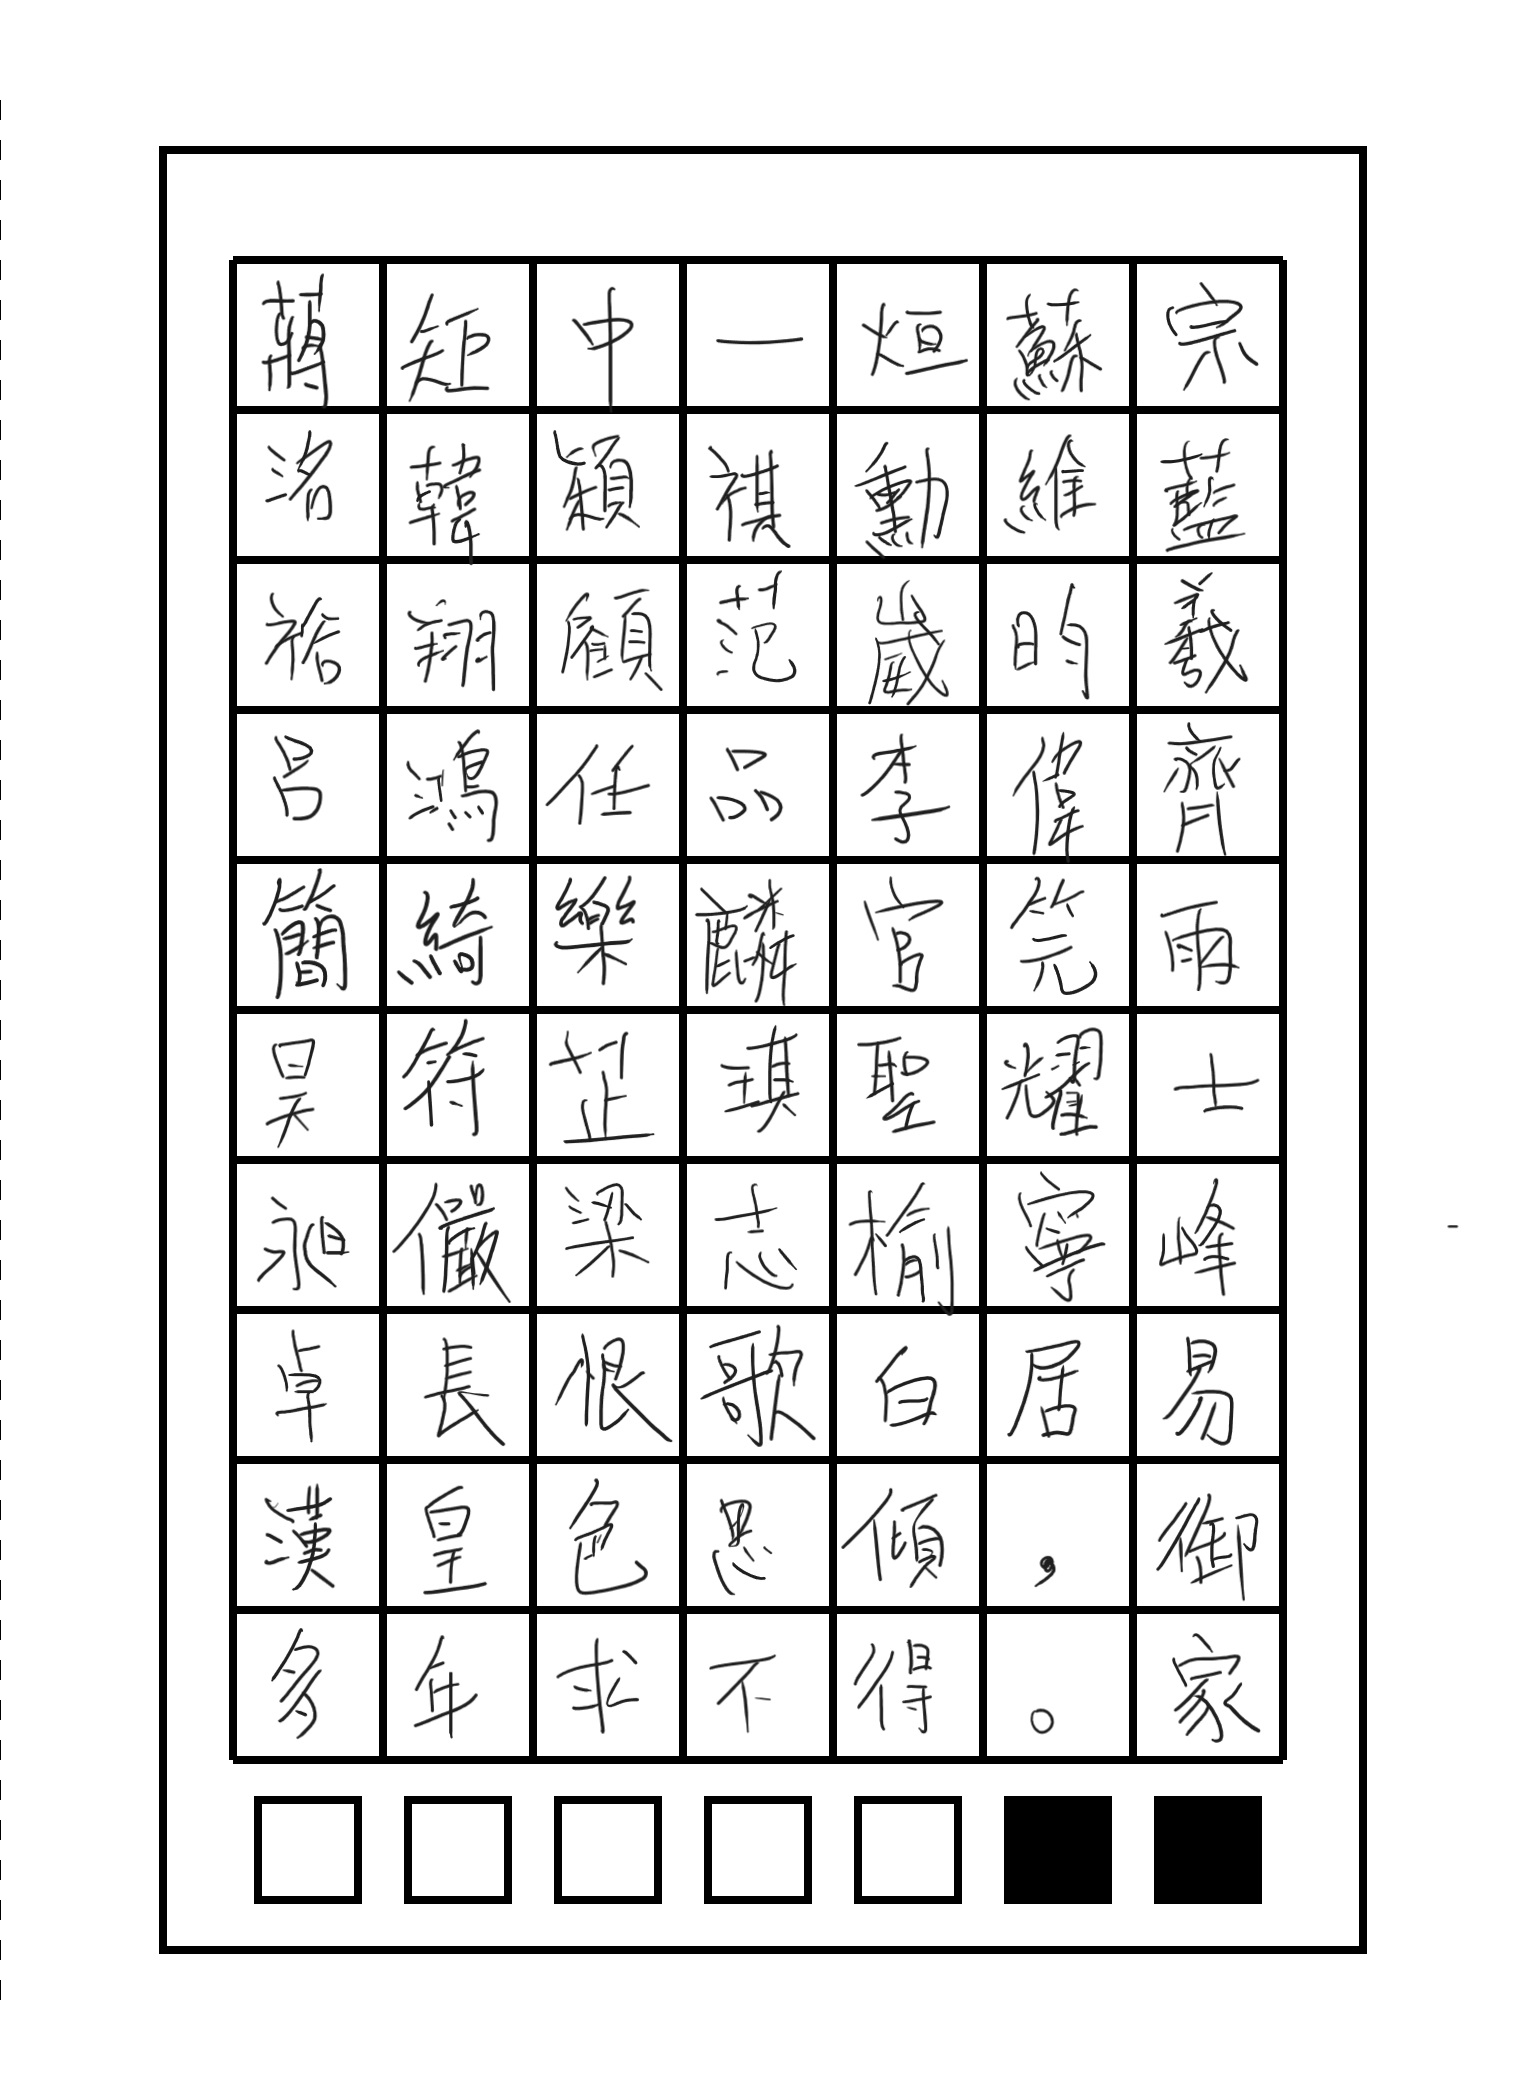 蔣矩中一烜蘇宗
洺韓穎祺勳維藍
祐翔顧范崴昀羲
呂鴻任品李偉齊
簡綺樂麟官筦雨
昊符芷琪聖耀士
昶儼梁志榆寧峰
卓長恨歌白居易
漢皇色思傾，御
多年求不得。家